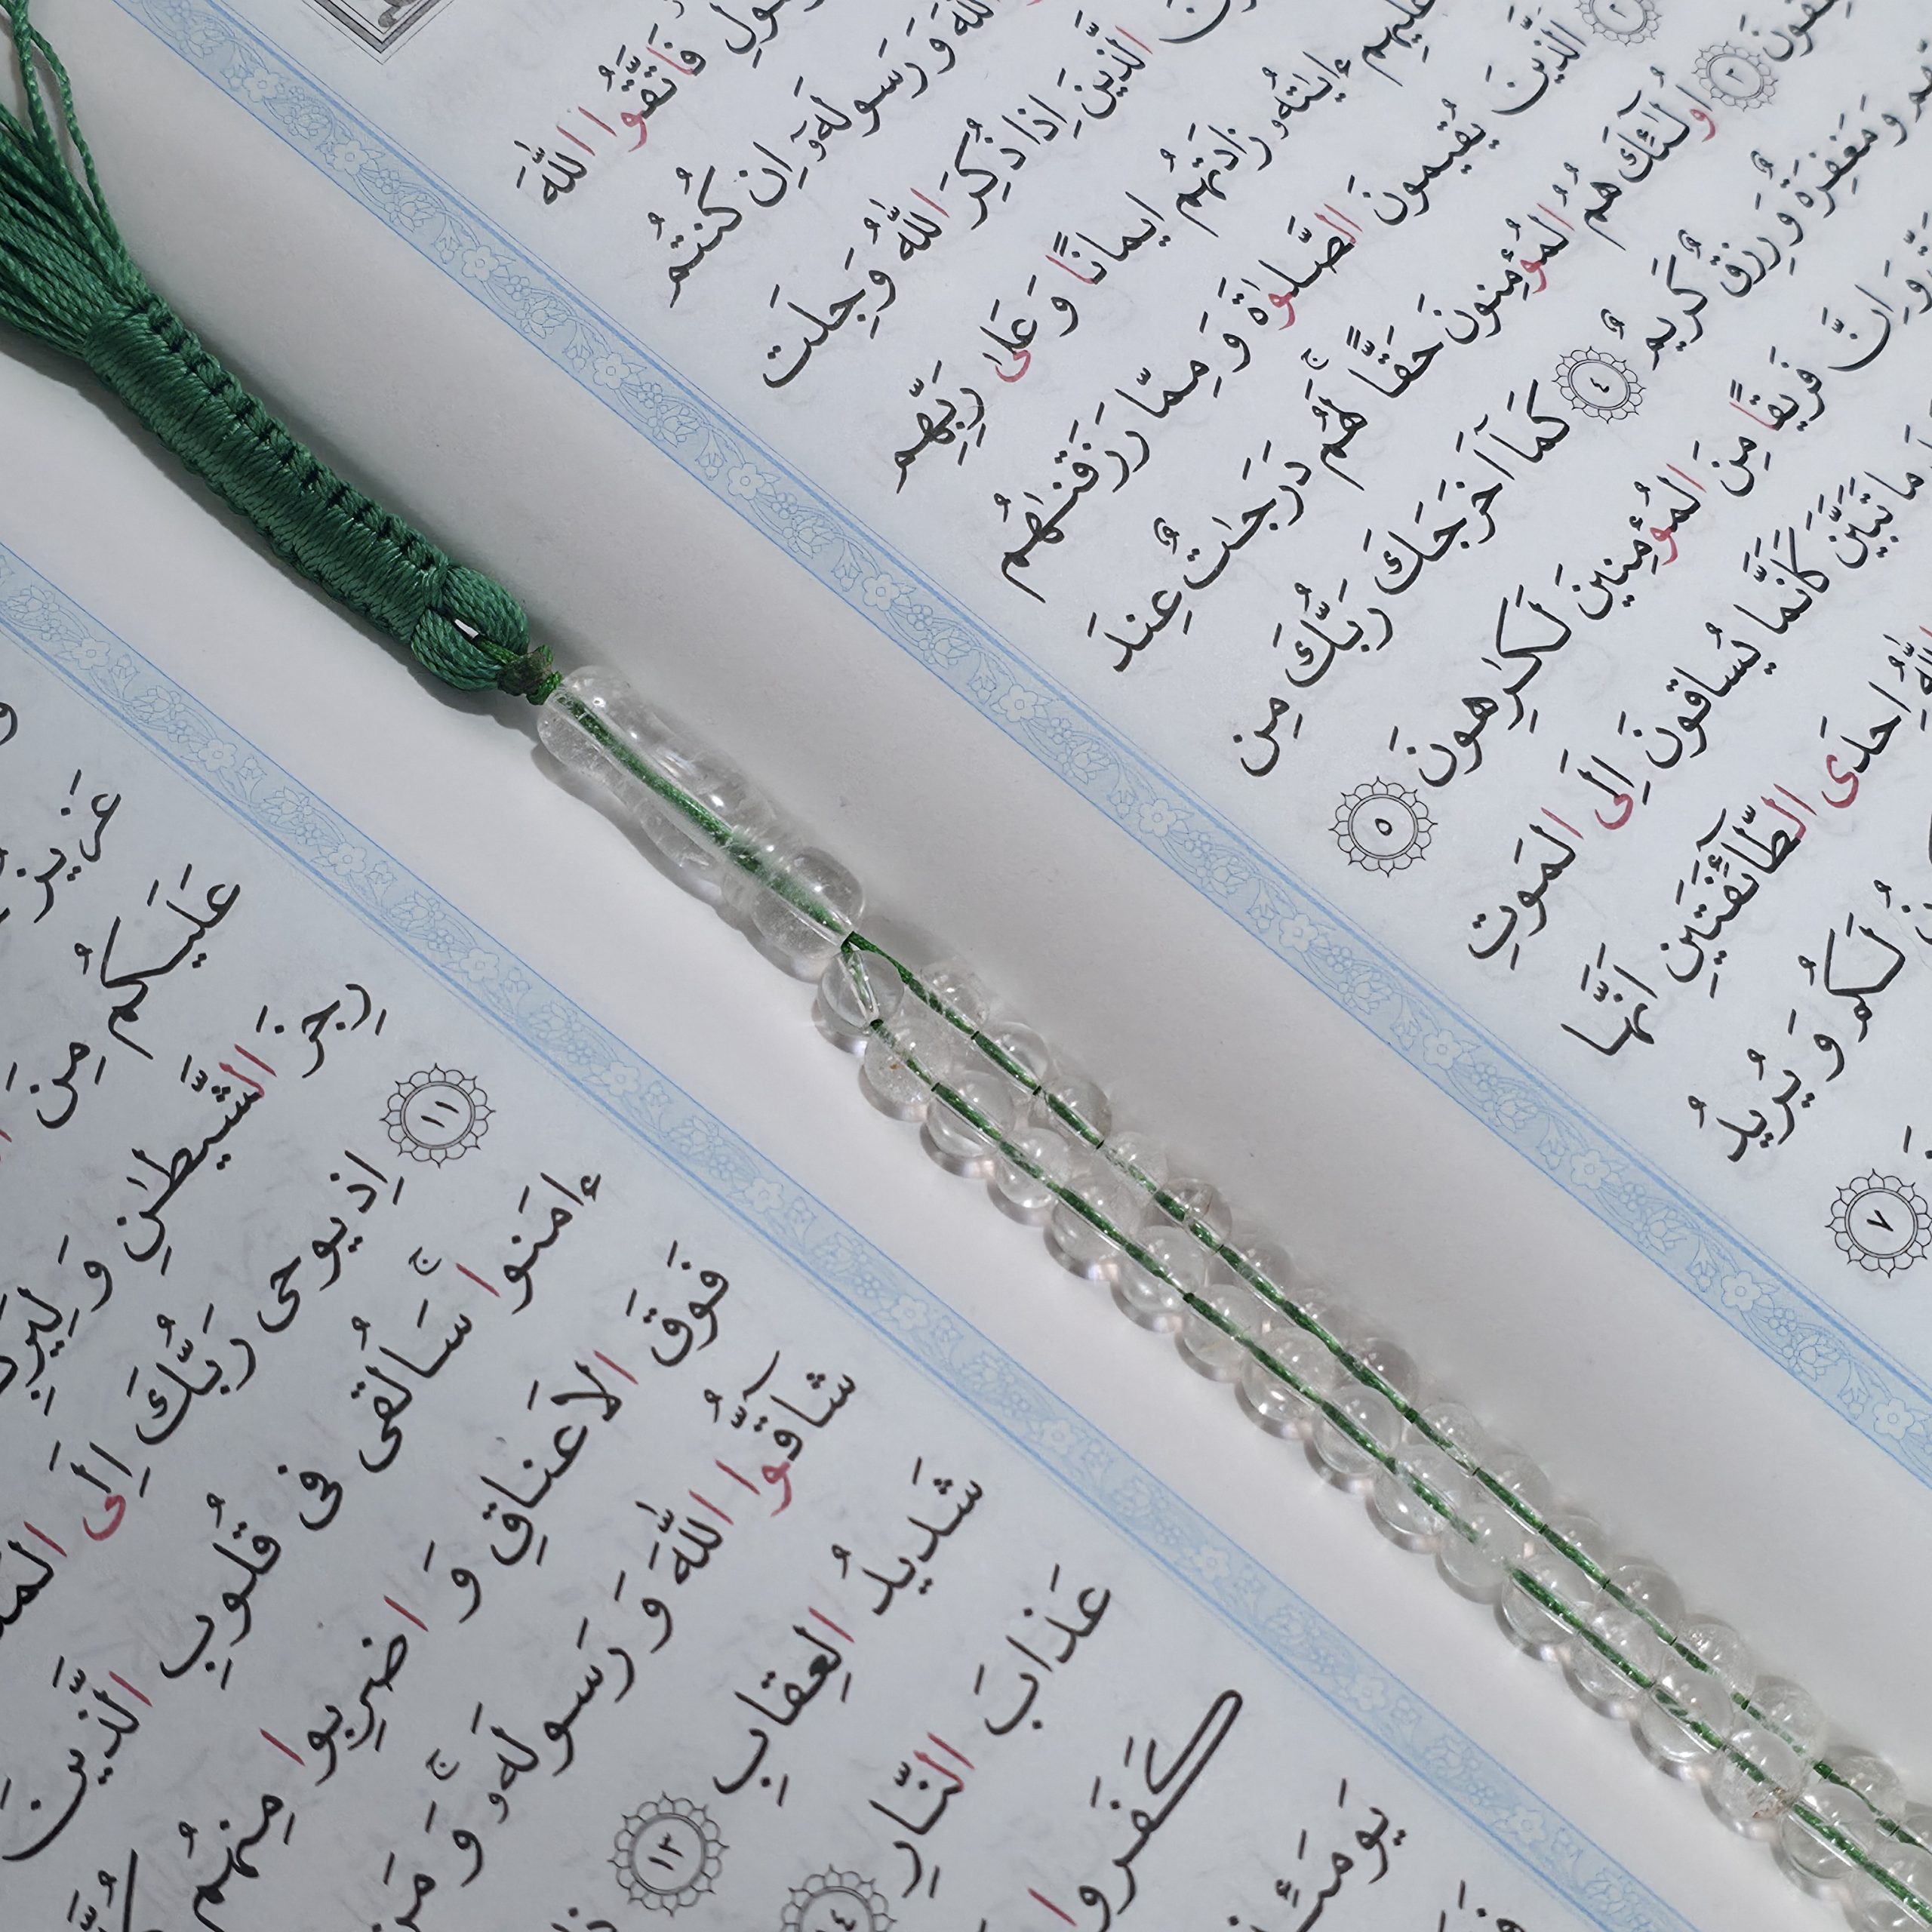 فَاتَّقُوا اللَّهَ
اللَّهَ وَرَسولَهُ اِن كُنتُم
الَّذينَ اِذا ذُكِرَ اللَّهُ وَجِلَت
عَلَيهِم ءايٰتُهُ زادَتهُم ايمانًا وَعَلىٰ رَبِّهِم
٢ الَّذينَ يُقيمونَ الصَّلوٰةَ وَمِمّا رَزَقنٰهُم
٣ اُولٰئِكَ هُمُ المُؤمِنونَ حَقًّا لَهُم دَرَجٰتٌ عِندَ
وَمَغفِرَةٌ وَرِزقٌ كَريمٌ ٤ كَمآ اَخرَجَكَ رَبُّكَ مِن
وَاِنَّ فَريقًا مِنَ المُؤمِنينَ لَكٰرِهونَ ٥
ما تَبَيَّنَ كَاَنَّما يُساقونَ اِلَى المَوتِ
اللَّهُ اِحدَى الطّآئِفَتَينِ اَنَّها
لَكُم وَيُريدُ
٧
عَزيز
عَلَيكُم مِنَ
رِجزَ الشَّيطٰنِ وَلِيَرب
١١ اِذ يوحى رَبُّكَ اِلَى
ءامَنوا سَاُلقى فى قُلوبِ الَّذينَ
فَوقَ الاَعناقِ وَاضرِبوا مِنهُم
شآقُّوا اللَّهَ وَرَسولَهُ وَمَن
شَديدُ العِقابِ ١٣
عَذابَ النّارِ ١٤
كَفَروا
يَومَئِذٍ